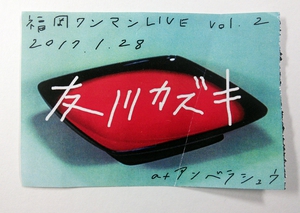 福岡ワンマンLIVE vol.2
2017.1.28
友川カズキ
atアンベラシュウ